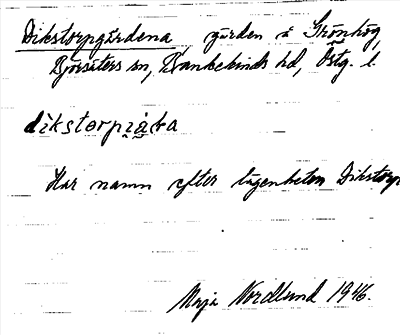 Dikstorpgärdena, gärden å Grönhög,
Björsäters sn, Bankekinds hd, Östg. l.
dikstorpjäɽa
Har namn efter lägenheten Dikstorp
Maja Nordlund 1946.